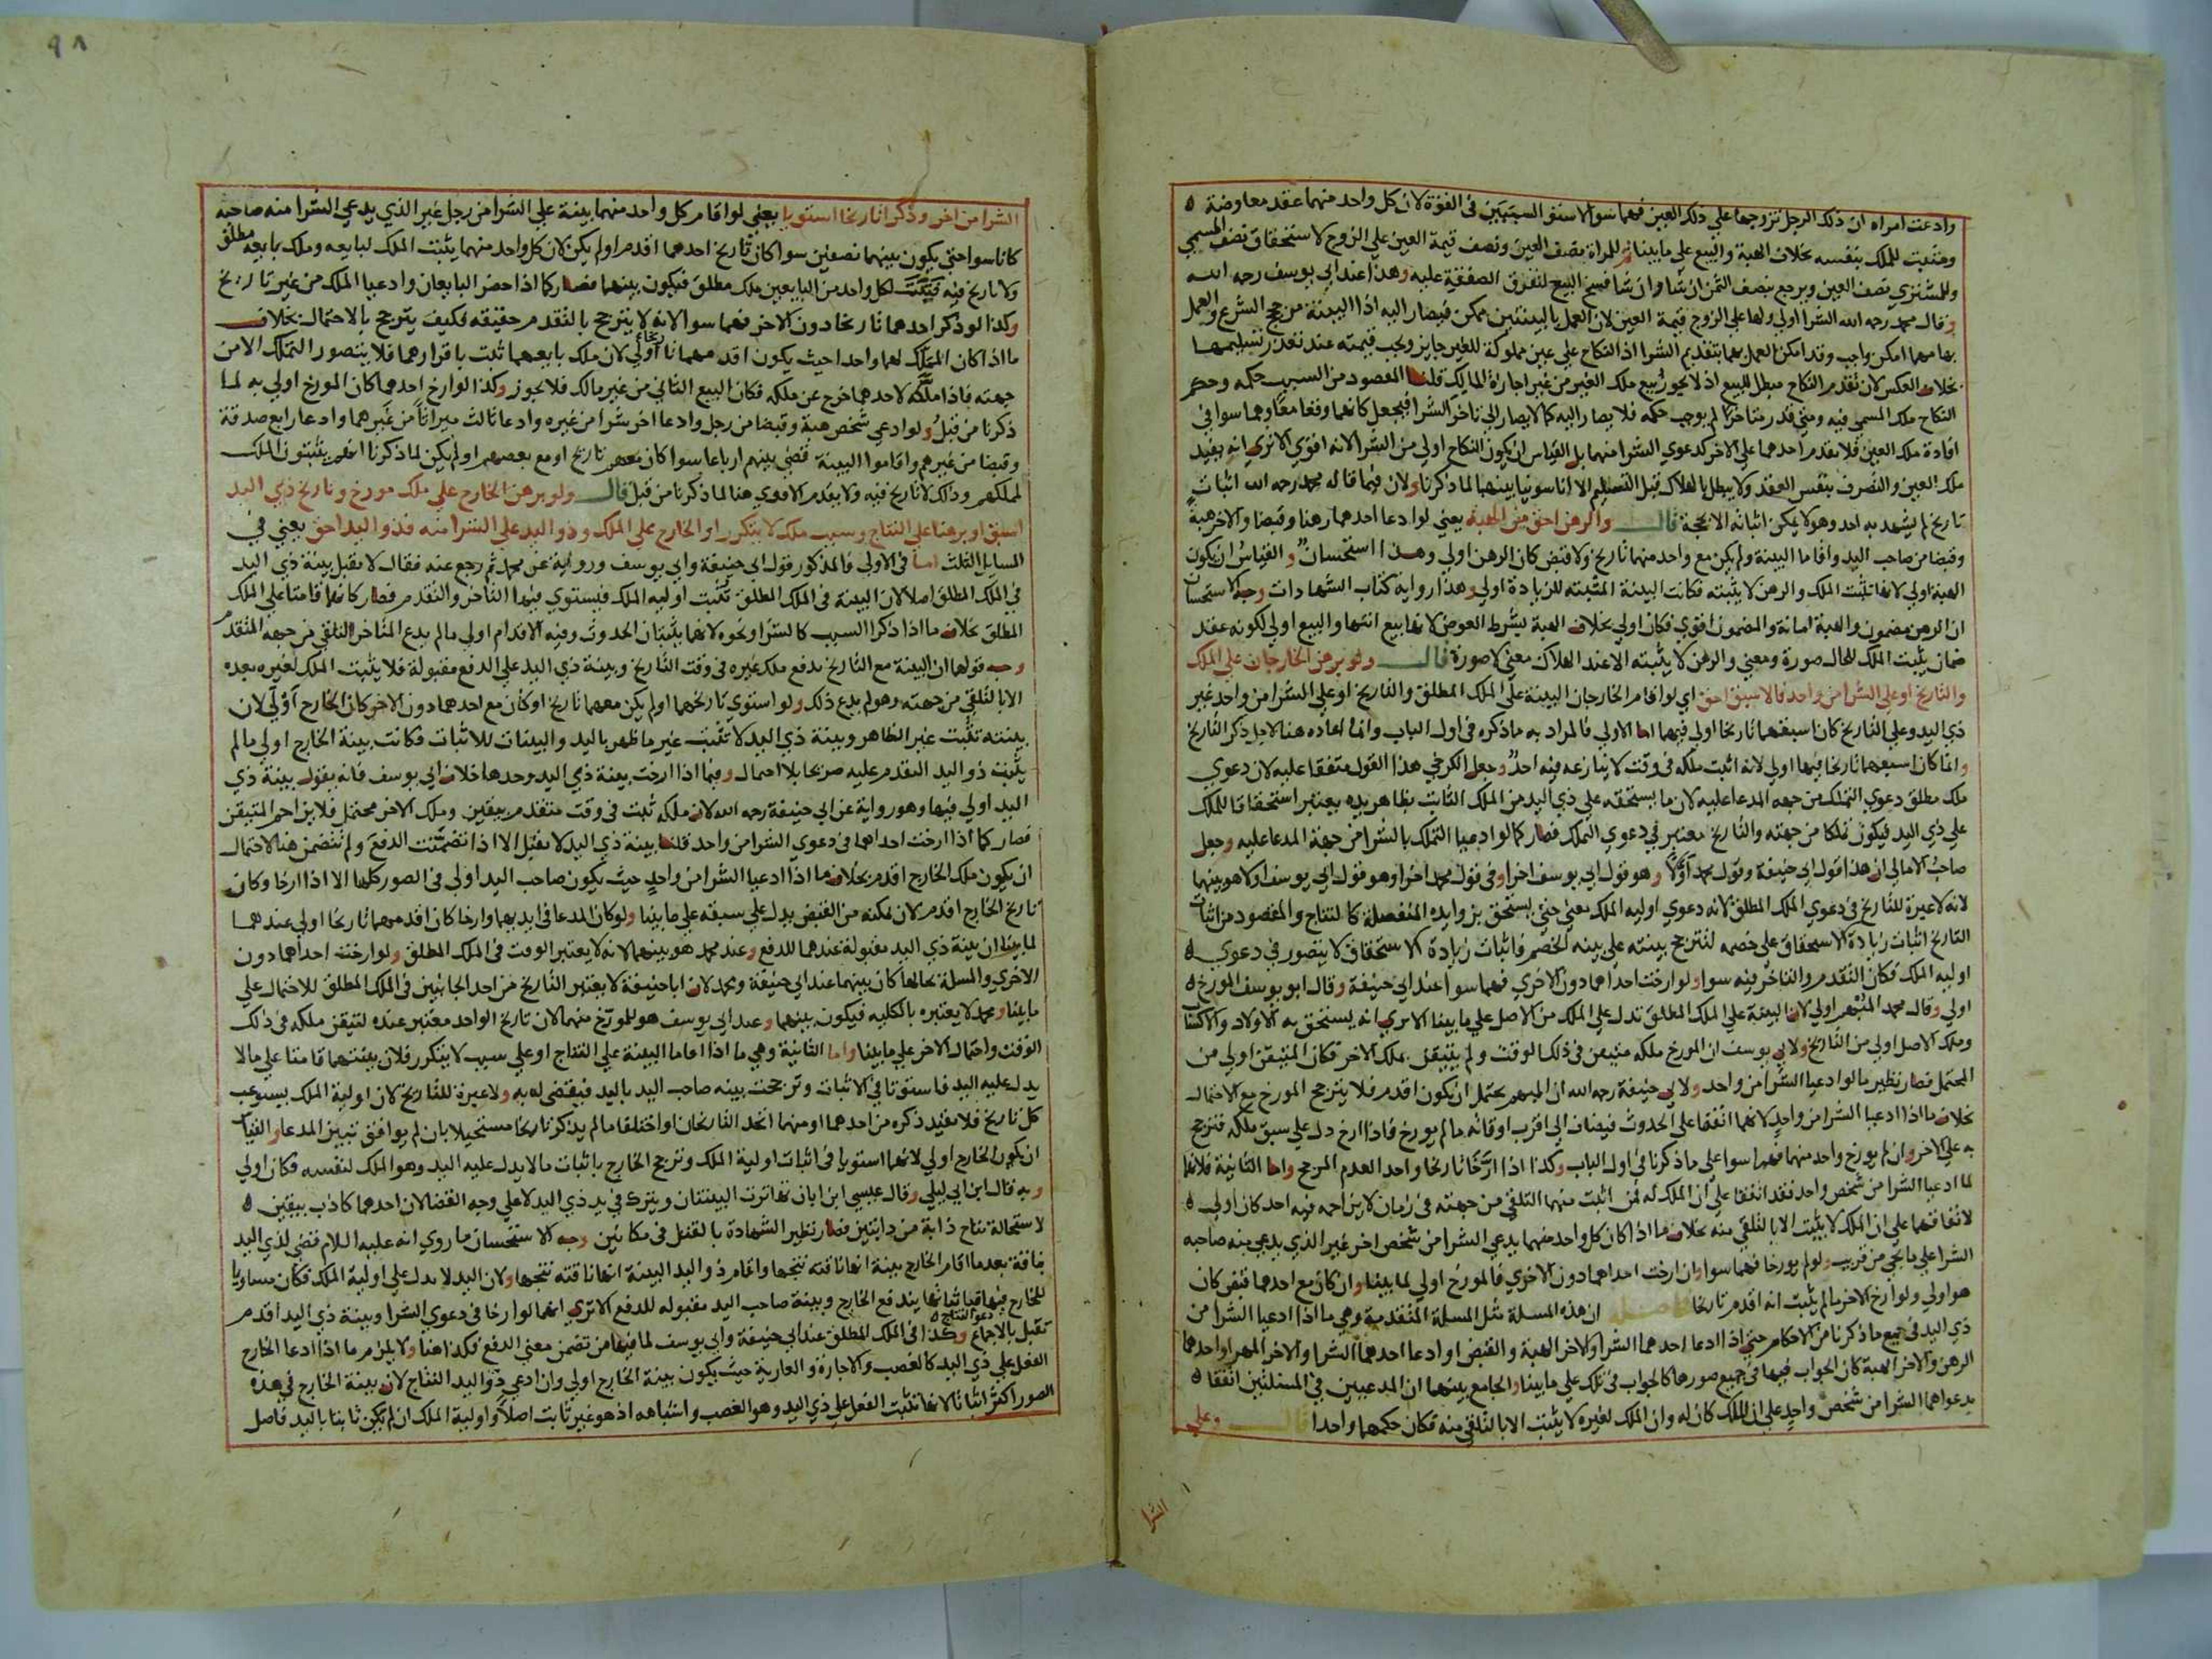 وادعت امراه ان ذلك الرجل تزوجها علي ذلك العبن فهما سوا لاستوا السببين في القوة لان كل واحد منهما عقد معاوضة
ومثبت للملك بنفسه بخلاف الهبة والبيع علي ما بينا ثم للمراة نصف العين ونصف قيمة العين علي الزوج لاستحقاق نصف المسمي
وللمشتري نصف العين ويرجع بنصف الثمن ان شا وان شا فسخ البيع لتفرق الصفقة عليه وهذا عند ابي يوسف رحمه الله
وقال محمد رحمه الله الشرا اولي ولها علي الزوج قيمة العين لان العمل بالبينتين ممكن فيصار اليه اذ البينة من حجج الشرع والعمل
بها مهما امكن واجب وقد امكن العمل بهما بتقديم الشرا اذ النكاح علي عين مملوكة للغير جايز ويجب قيمته عند تعذر تسليمها
بخلاف العكس لان تقدم النكاح مبطل للبيع اذ لا يجوز بيع ملك الغير من غير اجازة المالك قلنا المقصود من السبب حكمه وحكم
النكاح ملك المسمي فيه ومتي قدر متاخرا لم يوجب حكمه فلا يصار اليه كما لا يصار الي تاخر الشرا فيجعل كانهما وقعا معا وهما سوا في
افادة ملك العين فلا يقدم احدهما علي الاخر كدعوي الشرا منهما بل القياس ان يكون النكاح اولي من الشرا لانه اقوي الا تري انه يفيد
ملك العين والتصرف بنفس العقد ولا يبطل بالهلاك قبل التسليم الا انا سوينا بينهما لما ذكرنا ولان فيما قاله محمد رحمه الله اثبات
تاريخ لم يشهد به احد وهو لا يمكن اثباته الا بحجة قال والرهن احق من الهبة يعني لو ادعا احدهما رهنا وقبضا والاخر هبة
وقبضا من صاحب اليد واقاما البينة ولم يكن مع واحد منهما تاريخ ولا قبض كان الرهن اولي وهذا استحسان والقياس ان يكون
الهبة اولي لانها تثبت الملك والرهن لا يثبته فكانت البينة المثبتة للزيادة اولي وهذا رواية كتاب الشهادات وجه الاستحسان
ان الرهن مضمون والهبة امانة والمضمون اقوي فكان اولي بخلاف الهبة بشرط العوض لانها بيع انتها والبيع اولي لكونه عقد
ضمان يثبت الملك للحال صورة ومعني والرهن لا يثبته الا عند الهلاك معني لا صورة قال ولو برهن الخارجان علي الملك
والتاريخ او علي الشرا من واحد فالاسبق احق اي لو اقام الخارجان البينة علي الملك المطلق والتاريخ او علي الشرا من واحد غير
ذي اليد وعلي التاريخ كان اسبقهما تاريخا اولي فيهما اما الاولي فالمراد به ما ذكره في اول الباب وانما اعاده هنا لاجل ذكر التاريخ
وانما كان اسبقهما تاريخا فيها اولي لانه اثبت ملكه في وقت لا ينازعه فيه احد وجعل الكرخي هذا القول متفقا عليه لان دعوي
ملك مطلق دعوي التملك من جهه المدعا عليه لان ما يستحقه علي ذي اليد من الملك الثابت بظاهر يده يعتبر استحقاقا للملك
علي ذي اليد فيكون تملكا من جهته والتاريخ معتبر في دعوي التملك فصار كما لو ادعيا التملك بالشرا من جهة المدعا عليه وجعل
صاحب الامالي ان هذا قول ابي حنيفة وقول محمد اولا وهو قول ابي يوسف اخرا وفي قول محمد اخرا وهو قول ابي يوسف اولا هو بينهما
لانه لا عبرة للتاريخ في دعوي الملك المطلق لانه دعوي اولية الملك معني حتي يستحق بزوايده المنفصلة كالنتاج والمقصود من اثبات
التاريخ اثبات زيادة الاستحقاق علي خصمه لتترجح بينته علي بينه الخصم فاثبات زيادة الاستحقاق لا يتصور في دعوي
اولية الملك فكان التقدم والتاخر فيه سوا ولو ارخت احداهما دون الاخري فهما سوا عند ابي حنيفة وقال ابو يوسف المورخ
اولي وقال محمد المبهم اولي لان البينة علي الملك المطلق تدل علي الملك من الاصل علي ما بينا الا تري انه يستحق به الاولاد والاكساب
وملك الاصل اولي من التاريخ ولابي يوسف ان المورخ ملكه متيقن في ذلك الوقت ولم يتيقن بملك الاخر فكان المتيقن اولي من
المحتمل فصار نظير ما لو ادعيا الشرا من واحد ولابي حنيفة رحمه الله ان المبهم يحتمل ان يكون اقدم فلا يترجح المورخ مع الاحتمال
بخلاف ما اذا ادعيا الشرا من واحد لانهما اتفقا علي الحدوث فيضاف الي اقرب اوقاته ما لم يورخ فاذا ارخ دل علي سبق ملكه فترجح
به علي الاخر وان لم يورخ واحد منهما فهما سوا علي ما ذكرنا في اول الباب وكذا اذا ارخا تاريخا واحدا لعدم المرجح واما الثانية فلانهما
لما ادعيا الشرا من شخص واحد فقد اتفقا علي ان الملك له فمن اثبت منهما التلقي من جهته في زمان لا يزاحمه فيه احد كان اولي
لاتفاقهما علي ان الملك لا يثبت الا بالتلقي منه بخلاف ما اذا كان كل واحد منهما يدعي الشرا من شخص اخر غير الذي يدعي منه صاحبه
الشرا علي ما يجي من قريب ولو لم يورخا فهما سوا وان ارخت احداهما دون الاخري فالمورخ اولي لما بينا وان كان مع احدهما قبض كان
هو اولي ولو ارخ الاخر ما لم يثبت انه اقدم تاريخا فاصله ان هذه المسلة مثل المسلة المتقدمة وهي ما اذا ادعيا الشرا من
ذي اليد في جميع ما ذكرنا من الاحكام حتي اذا ادعا احدهما الشرا والاخر الهبة والقبض او ادعا احدهما الشرا والاخر المهر او احدهما
الرهن والاخر الهبة كان الجواب فيها في جميع صورها كالجواب في تلك علي ما بينا والجامع بينهما ان المدعيين في المسلتين اتفقا
بدعواهما الشرا من شخص واحد علي ان الملك كان له وان الملك لغيره لا يثبت الا بالتلقي منه فكان حكمهما واحدا قال وعلي
الشرا
٩٨
الشرا من اخر وذكرا تاريخا استويا يعني لو اقام كل واحد منهما بينة علي الشرا من رجل غير الذي يدعي الشرا منه صاحبه
كانا سوا حتي يكون بينهما نصفين سوا كان تاريخ احدهما اقدم او لم يكن لان كل واحد منهما يثبت الملك لبايعه وملك بايعه مطلق
ولا تاريخ فيه فيثبت لكل واحد من البايعين ملك مطلق فيكون بينهما فصار كما اذا حضر البايعان وادعيا الملك من غير تاريخ
وكذا لو ذكر احدهما تاريخا دون الاخر فهما سوا لانه لا يترجح بالتقدم حقيقه فكيف يترجح بالاحتمال بخلاف
ما اذا كان المملك لهما واحدا حيث يكون اقدمهما تاريخا اولي لان ملك بايعهما ثبت باقرارهما فلا يتصور التملك الا من
جهته فاذا ملكه لاحدهما خرج عن ملكه فكان البيع الثاني من غير مالك فلا يجوز وكذا لو ارخ احدهما كان المورخ اولي به لما
ذكرنا من قبل ولو ادعي شخص هبة وقبضا من رجل وادعا اخر شرا من غيره وادعا ثالث ميراثا من غيرهما وادعا رابع صدقة
وقبضا من غيرهم واقاموا البينة قضي بينهم ارباعا سوا كان معهم تاريخ او مع بعضهم او لم يكن لما ذكرنا انهم يثبتون الملك
لمملكهم وذلك لا تاريخ فيه ولا يقدم الاقوي هنا لما ذكرنا من قبل قال ولو برهن الخارج علي ملك مورخ وتاريخ ذي اليد
اسبق او برهنا علي النتاج وسبب ملك لا يتكرر او الخارج علي الملك وذو اليد علي الشرا منه فذو اليد احق يعني في
المسايل الثلث اما في الاولي فالمذكور قول ابي حنيفة وابي يوسف ورواية عن محمد ثم رجع عنه فقال لا تقبل بينة ذي اليد
في الملك المطلق اصلا لان البينة في الملك المطلق تثبت اولية الملك فيستوي فيها التاخر والتقدم فصار كانهما قامتا علي الملك
المطلق بخلاف ما اذا ذكرا السبب كالشرا ونحوه لانهما يثبتان الحدوث وفيه الاقدام اولي ما لم يدع المتاخر التلقي من جهه المتقدم
وجه قولهما ان البينة مع التاريخ تدفع ملك غيره في وقت التاريخ وبينة ذي اليد علي الدفع مقبولة فلا يثبت الملك لغيره بعده
الا بالتلقي من جهته وهو لم يدع ذلك ولو استوي تاريخهما او لم يكن معهما تاريخ او كان مع احدهما دون الاخر كان الخارج اولي لان
بينته تثبت غير الظاهر وبينة ذي اليد لا تثبت غير ما ظهر باليد والبينات للاثبات فكانت بينة الخارج اولي ما لم
يثبت ذو اليد التقدم عليه صريحا بلا احتمال وفيما اذا ارخت بينة ذي اليد وحدها خلاف ابي يوسف فانه يقول بينة ذي
اليد اولي فيها وهو رواية عن ابي حنيفة رحمه الله لان ملكه ثبت في وقت متقدم بيقين وملك الاخر محتمل فلا يزاحم المتيقن
فصار كما اذا ارخت احداهما في دعوي الشرا من واحد قلنا بينة ذي اليد لا تقبل الا اذا تضمنت الدفع ولم تتضمن هنا لاحتمال
ان يكون ملك الخارج اقدم بخلاف ما اذا ادعيا الشرا من واحد حيث يكون صاحب اليد اولي في الصور كلها الا اذا ارخا وكان
تاريخ الخارج اقدم لان تمكنه من القبض يدل علي سبقه علي ما بينا ولو كان المدعا في ايديهما وارخا كان اقدمهما تاريخا اولي عندهما
لما بينا ان بينة ذي اليد مقبولة عندهما للدفع وعند محمد هو بينهما لانه لا يعتبر الوقت في الملك المطلق ولو ارخت احداهما دون
الاخري والمسلة بحالها كان بينهما عند ابي حنيفة ومحمد لان ابا حنيفة لا يعتبر التاريخ من احد الجانبين في الملك المطلق للاحتمال علي
ما بينا ومحمد لا يعتبره بالكليه فيكون بينهما وعند ابي يوسف هو للمورخ منهما لان تاريخ الواحد معتبر عنده لتيقن ملكه في ذلك
الوقت واحتمال الاخر علي ما بينا واما الثانية وهي ما اذا اقاما البينة علي النتاج او علي سبب لا يتكرر فلان بينتهما قامتا علي ما لا
يدل عليه اليد فاستوتا في الاثبات وترجحت بينه صاحب اليد باليد فيقضي له به ولا عبرة للتاريخ لان اولية الملك يستوعب
كل تاريخ فلا يفيد ذكره من احدهما او منهما اتحد التاريخان او اختلفا ما لم يذكر تاريخا مستحيلا بان لم يوافق تبين المدعا والقياس
ان يكون الخارج اولي لانهما استويا في اثبات اولية الملك وترجح الخارج باثبات ما لا يدل عليه اليد وهو الملك لنفسه فكان اولي
وبه قال ابن ابي ليلي وقال عيسي ابن ابان تهاترت البينتان ويترك في يد ذي اليد لا علي وجه القضا لان احدهما كاذب بيقين
لاستحالة نتاج دابة من دابتين فصار نظير الشهادة بالقتل في مكانين وجه الاستحسان ما روي انه عليه السلام قضي لذي اليد
بناقة بعدما اقام الخارج بينة انها ناقته نتجها واقام ذو اليد البينة انها ناقته نتجها ولان اليد لا تدل علي اولية الملك فكان مساويا
للخارج فيها فباثباتها يندفع الخارج وبينة صاحب اليد مقبوله للدفع الا تري انهما لو ارخا في دعوي الشرا وبينة ذي اليد اقدم
تقبل بالاجماع وكذا في الملك المطلق عند ابي حنيفة وابي يوسف لما فيها من تضمن معني الدفع فكذا هنا ولا يلزم ما اذا ادعا الخارج
دعوا النتاج
الفعل علي ذي اليد كالغصب والاجارة والعارية حيث يكون بينة الخارج اولي وان ادعي ذو اليد النتاج لان بينة الخارج في هذه
الصور اكثر اثباتا لانها تثبت الفعل علي ذي اليد وهو الغصب واشباهه اذ هو غير ثابت اصلا واولية الملك ان لم يكن ثابتا باليد فاصل